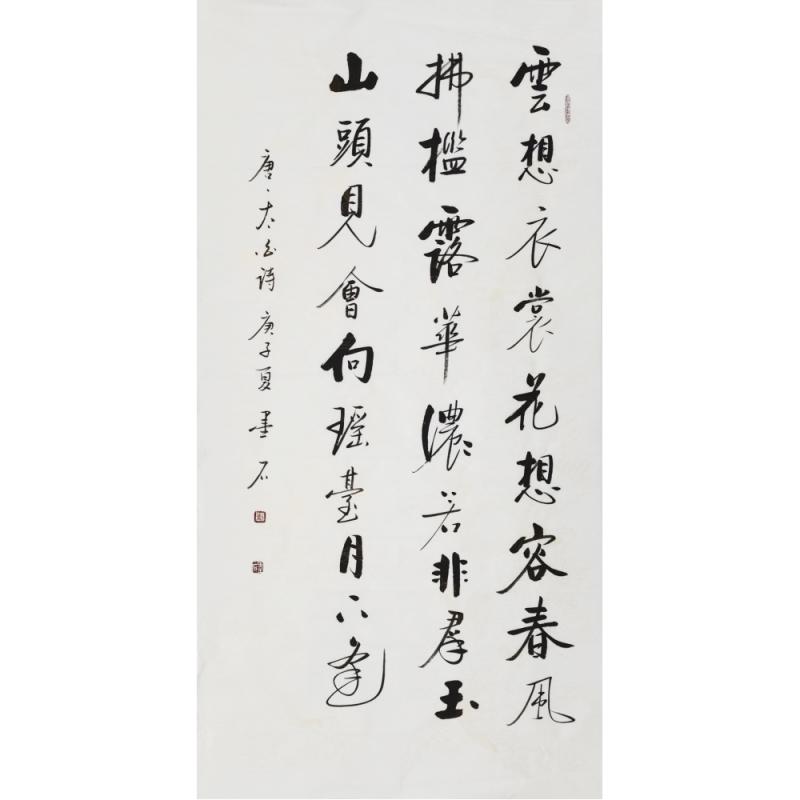 雲想衣裳花想容春風
拂檻露華濃若非群玉
山頭見會向瑤臺月下逢
唐、太白詩 庚子夏 墨石